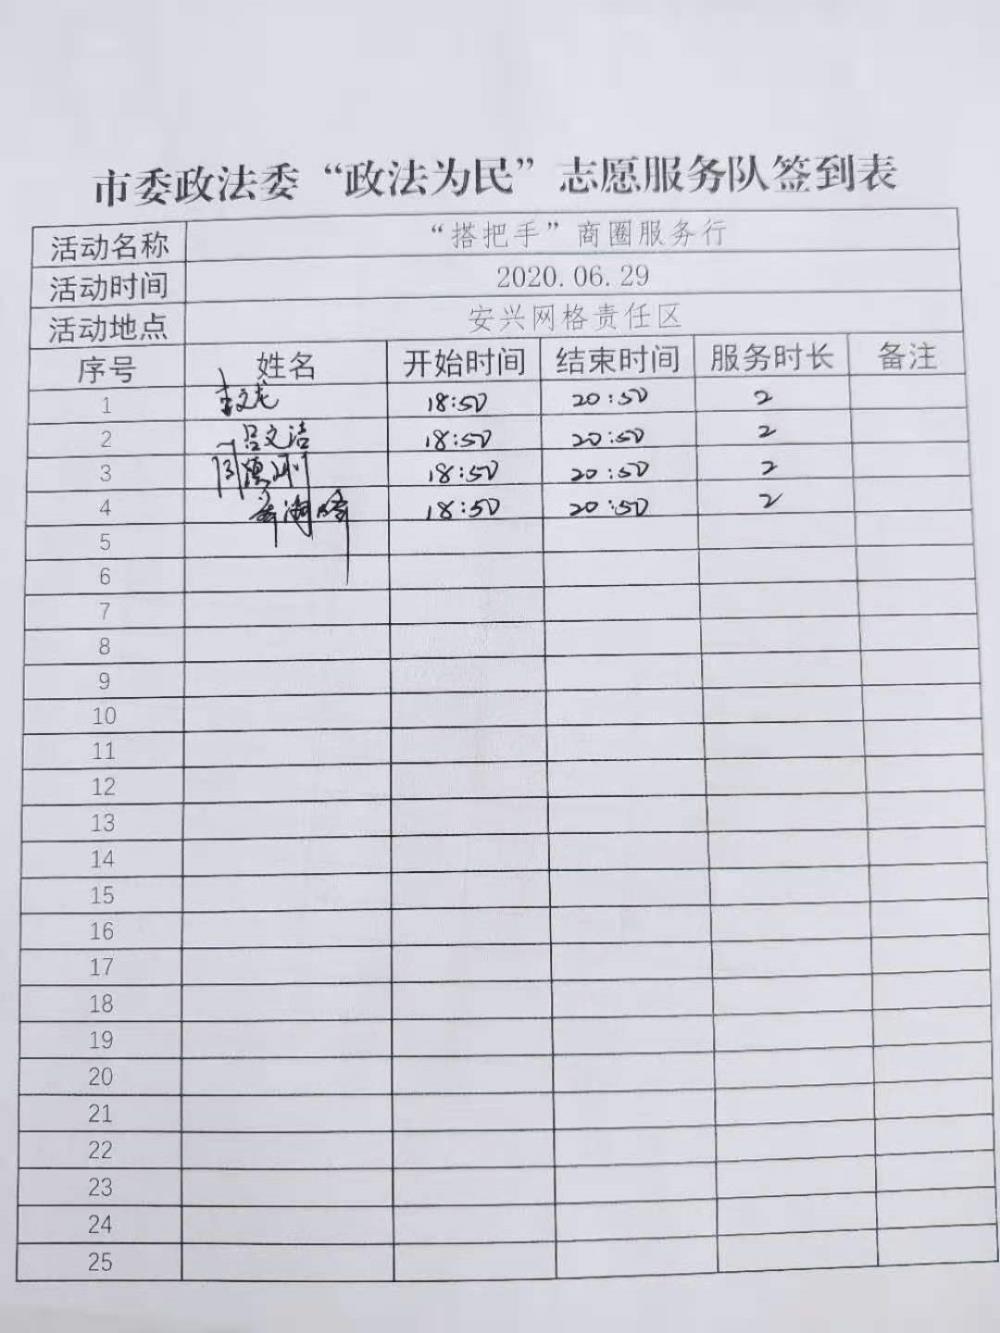 市委政法委“政法为民”志愿服务队签到表
活动名称 “搭把手”商圈服务行
活动时间 2020.06.29
活动地点 安兴网格责任区
序号 姓名 开始时间 结束时间 服务时长 备注
1 李文龙 18:50 20:50 2
2 吕文洁 18:50 20:50 2
3 周德刚 18:50 20:50 2
4 18:50 20:50 2
5
6
7
8
9
10
11
12
13
14
15
16
17
18
19
20
21
22
23
24
25